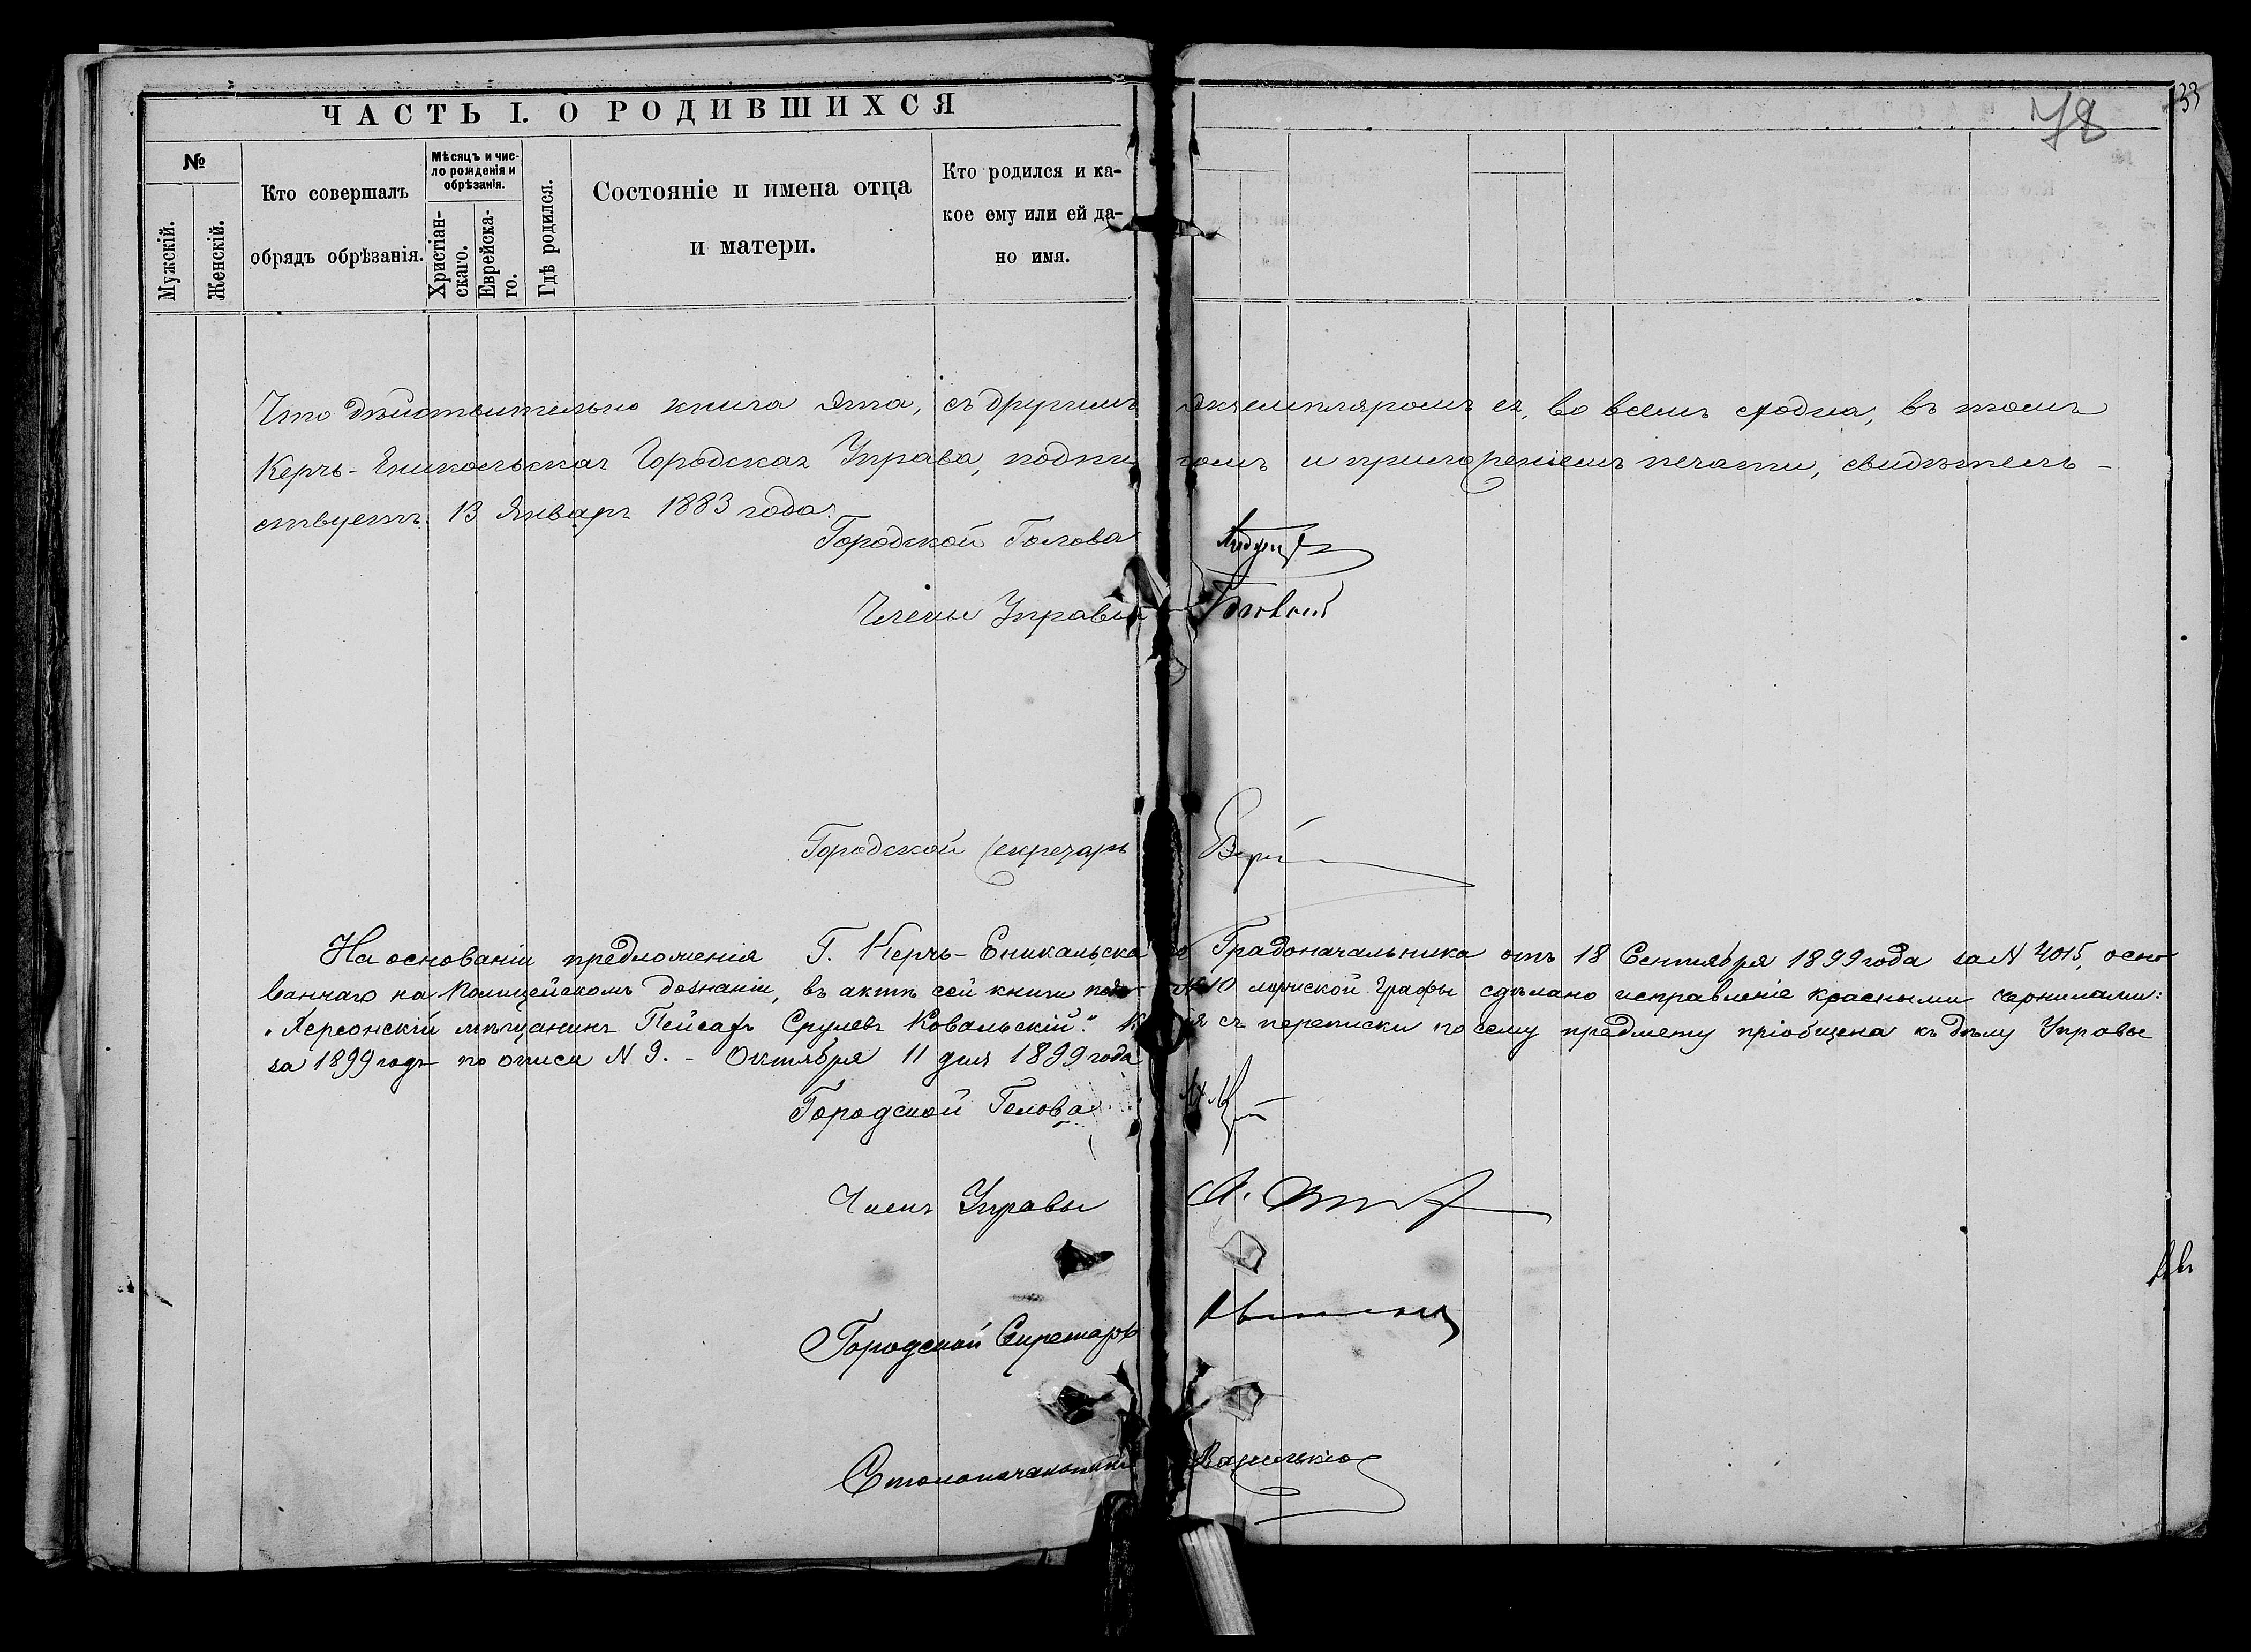 ЧАСТЬ I. О РОДИВШИХСЯ
78
33
№
Мужскій.
Женскій.
Кто совершалъ
обрядъ обрѣзанія.
Мѣсяцъ и чис-
ло рожденія и
обрѣзанія.
Христіан-
скаго.
Еврейска-
го.
Гдѣ родился.
Состояніе и имена отца
и матери.
Кто родился и ка-
кое ему или ей да-
но имя.
Что дѣйствительно книга эта, съ другимъ экземпляромъ ея, во всемъ сходна, въ томъ
Керчь-Еникольская Городская Управа, подпи сомъ и приложеніемъ печати, свидѣтель-
ствуетъ. 13 Января 1883 года.
Городской Голова
Члены Управы
Городской Секретарь
На основаніи предложенія Г. Керчь-Еникальска го Градоначальника отъ 18 Сентября 1899 года за N 4015, осно-
ваннаго на Полицейскомъ дознаніи, въ актѣ сей книги подъ №10 мужской графы сдѣлано исправленіе красными чернилами:
"Херсонскій мѣщанинъ Пейсахъ Срулевъ Ковальскій." Копія съ переписки по сему предмету пріобщена къ дѣлу Управы
за 1899 годъ по описи N 9. - Октября 11 дня 1899 года
Городской Голова
Членъ Управы
А.
Городской Секретарь
Столоначальникъ